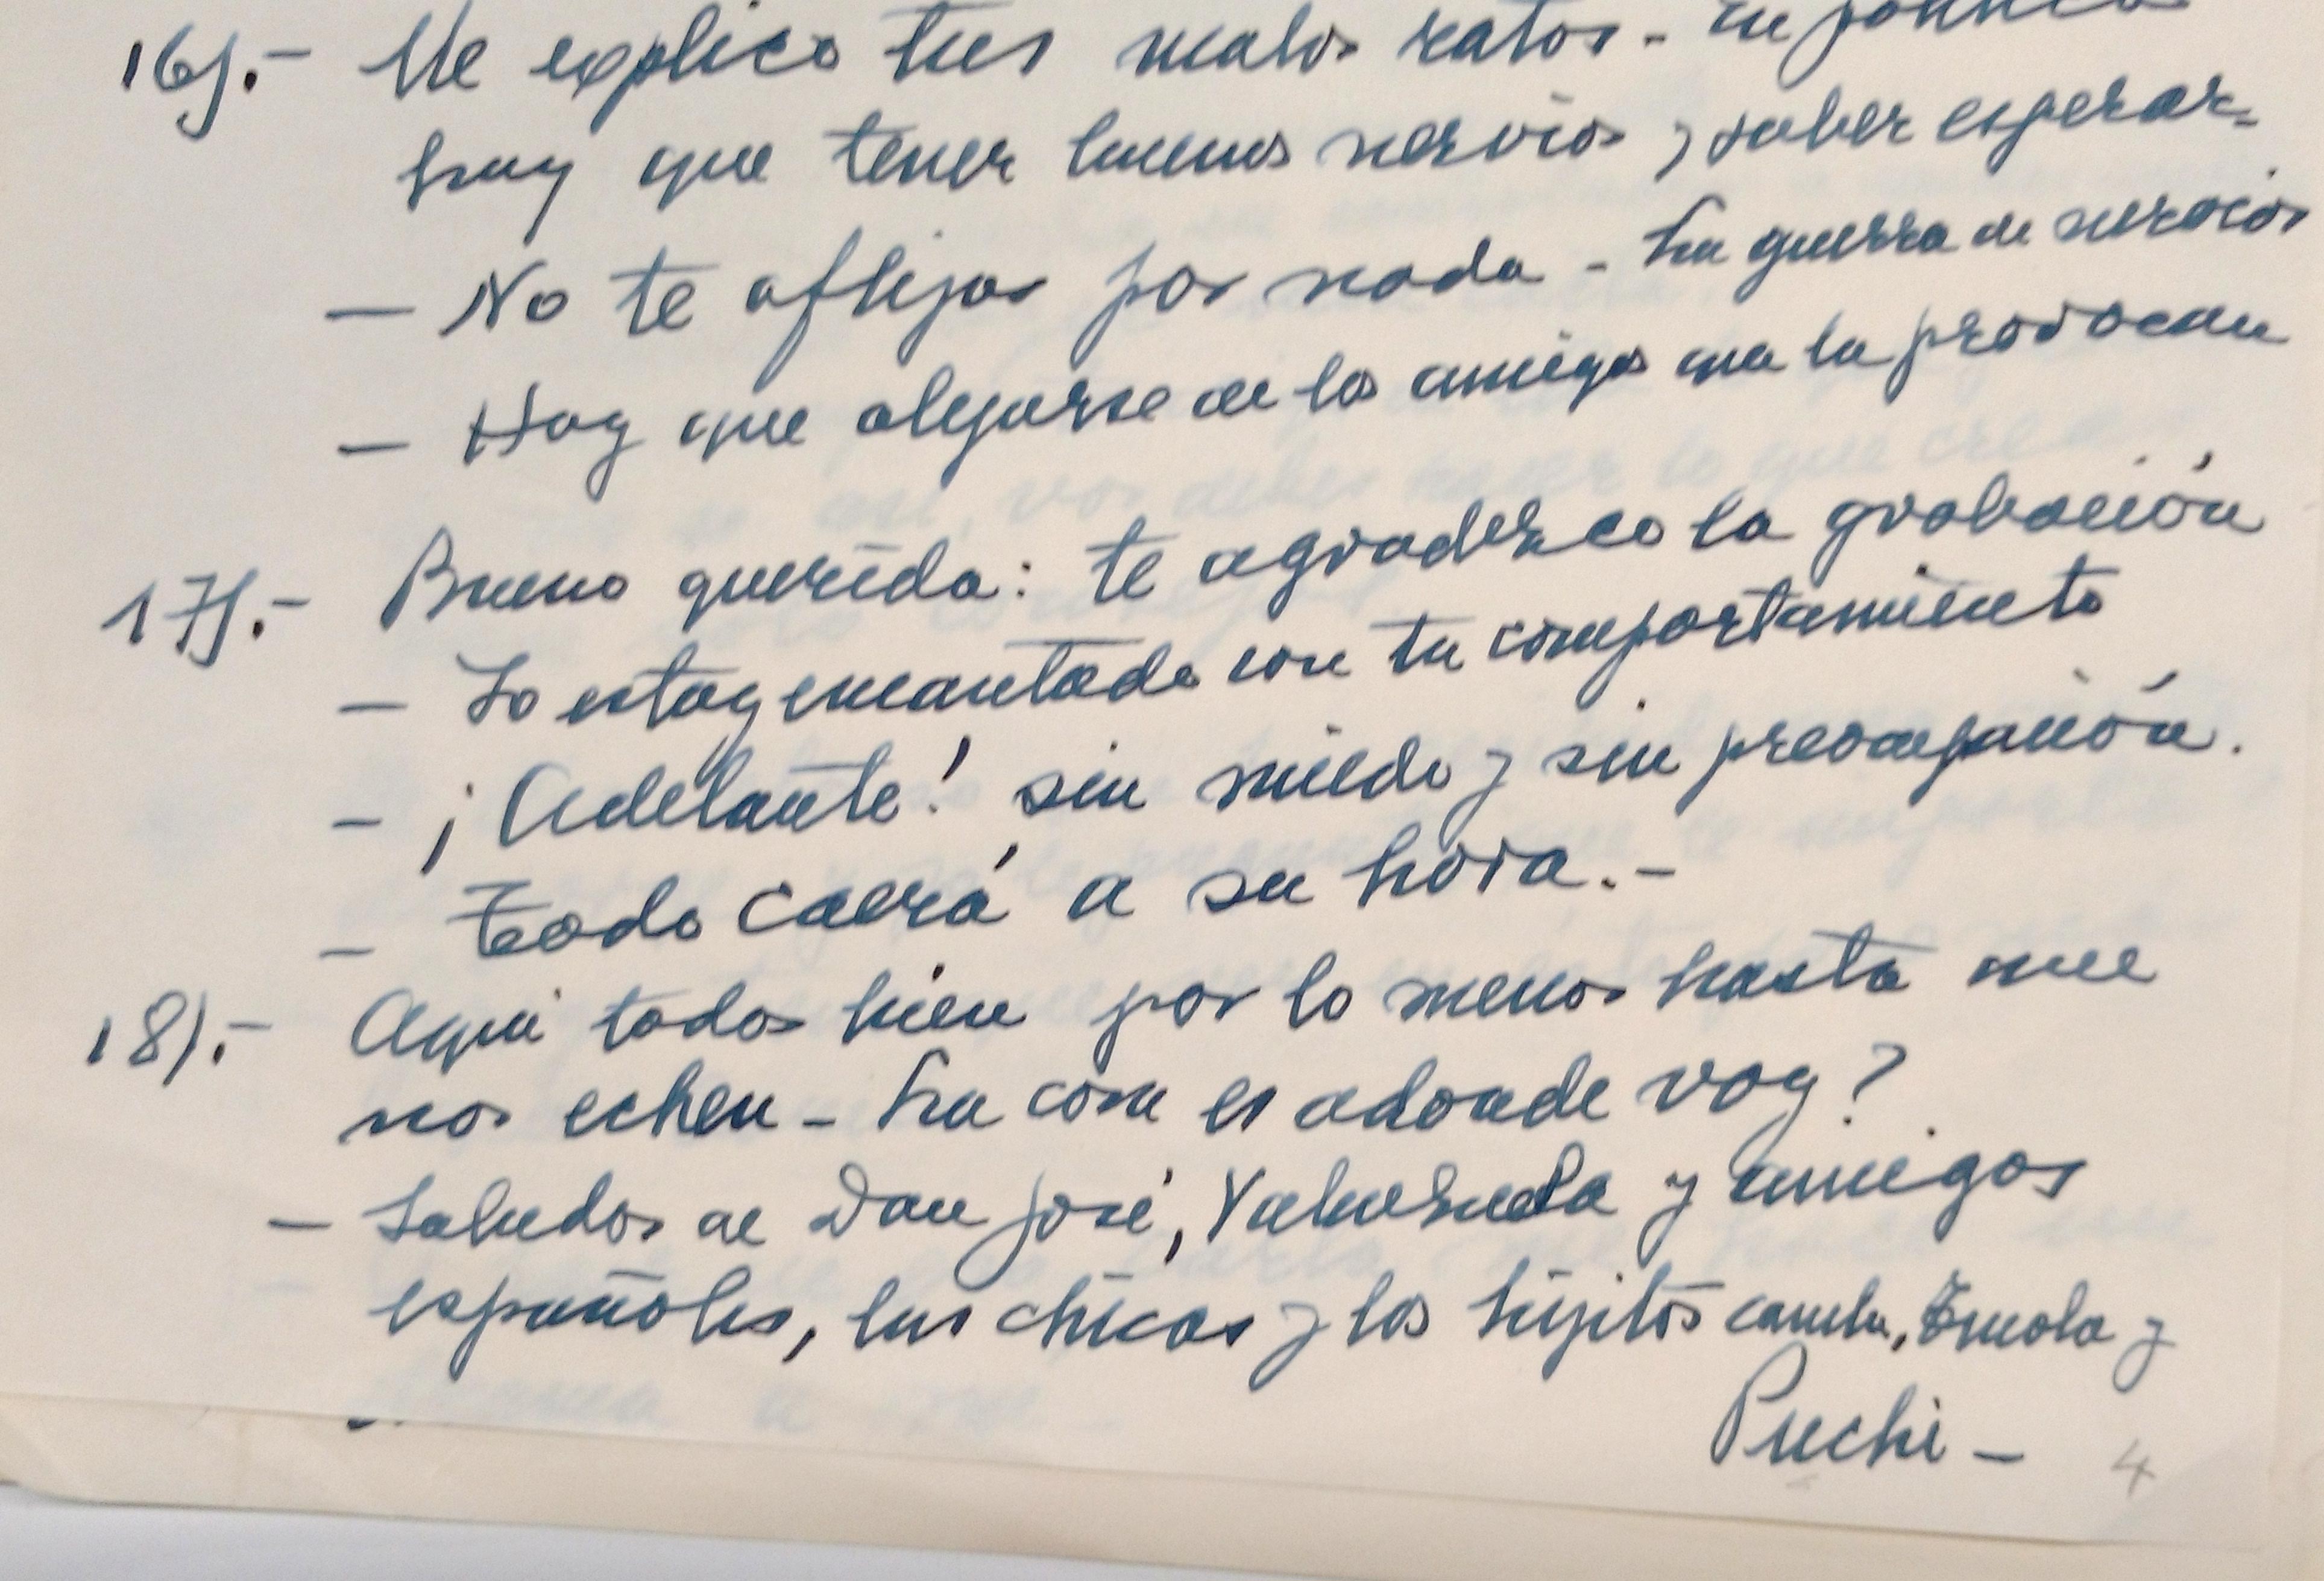 16).- Me explico tus malos ratos - En política
hay que tener buenos nervios y saber esperar-
— No te aflijas por nada - La guerra de nervios
— Hay que alejarse de los amigos que la provocan
17).- Bueno querida: te agradezco la grabación
— Yo estoy encantado con tu comportamiento
— ¡Adelante! sin miedo y sin preocupación.
— Todo caerá a su hora.-
18).- Aqui todos bien por lo menos hasta que
nos echen - La cosa es adonde voy?
— Saludos a Don José, Valenzuela y amigos
españoles, las chicas y los hijitos canela, Tinola y
Puchi -
4